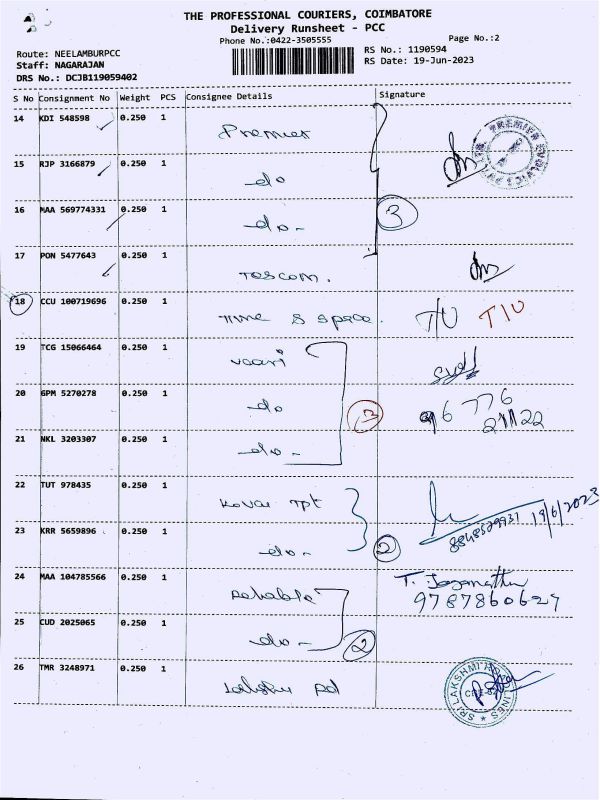 THE PROFESSIONAL COURIERS, COIMBATORE
Delivery Runsheet - PCC
Phone No.:0422-3505555
Page No.:2
Route: NEELAMBURPCC
Staff: NAGARAJAN
DRS No.: DCJB119059402
RS No.: 1190594
RS Date: 19-Jun-2023
S No Consignment No Weight PCS Consignee Details Signature
14 KDI 548598 0.250 1 Premier
15 RJP 3166879 0.250 1 do
16 MAA 569774331 0.250 1 do - 3
17 PON 5477643 0.250 1 Texcom.
18 CCU 100719696 0.250 1 Time & space. TIU TIU
19 TCG 15066464 0.250 1 vaari
20 GPM 5270278 0.250 1 do 3
21 NKL 3203307 0.250 1 do -
22 TUT 978435 0.250 1 Kovai Tpt
8848529931 19/6/2023
23 KRR 5659896 0.250 1 do - 2
24 MAA 104785566 0.250 1 Reliable T. Jaganathan
9787860627
25 CUD 2025065 0.250 1 do - 2
26 TMR 3248971 0.250 1 Lakshmi Rd
SRI LAKSHMI